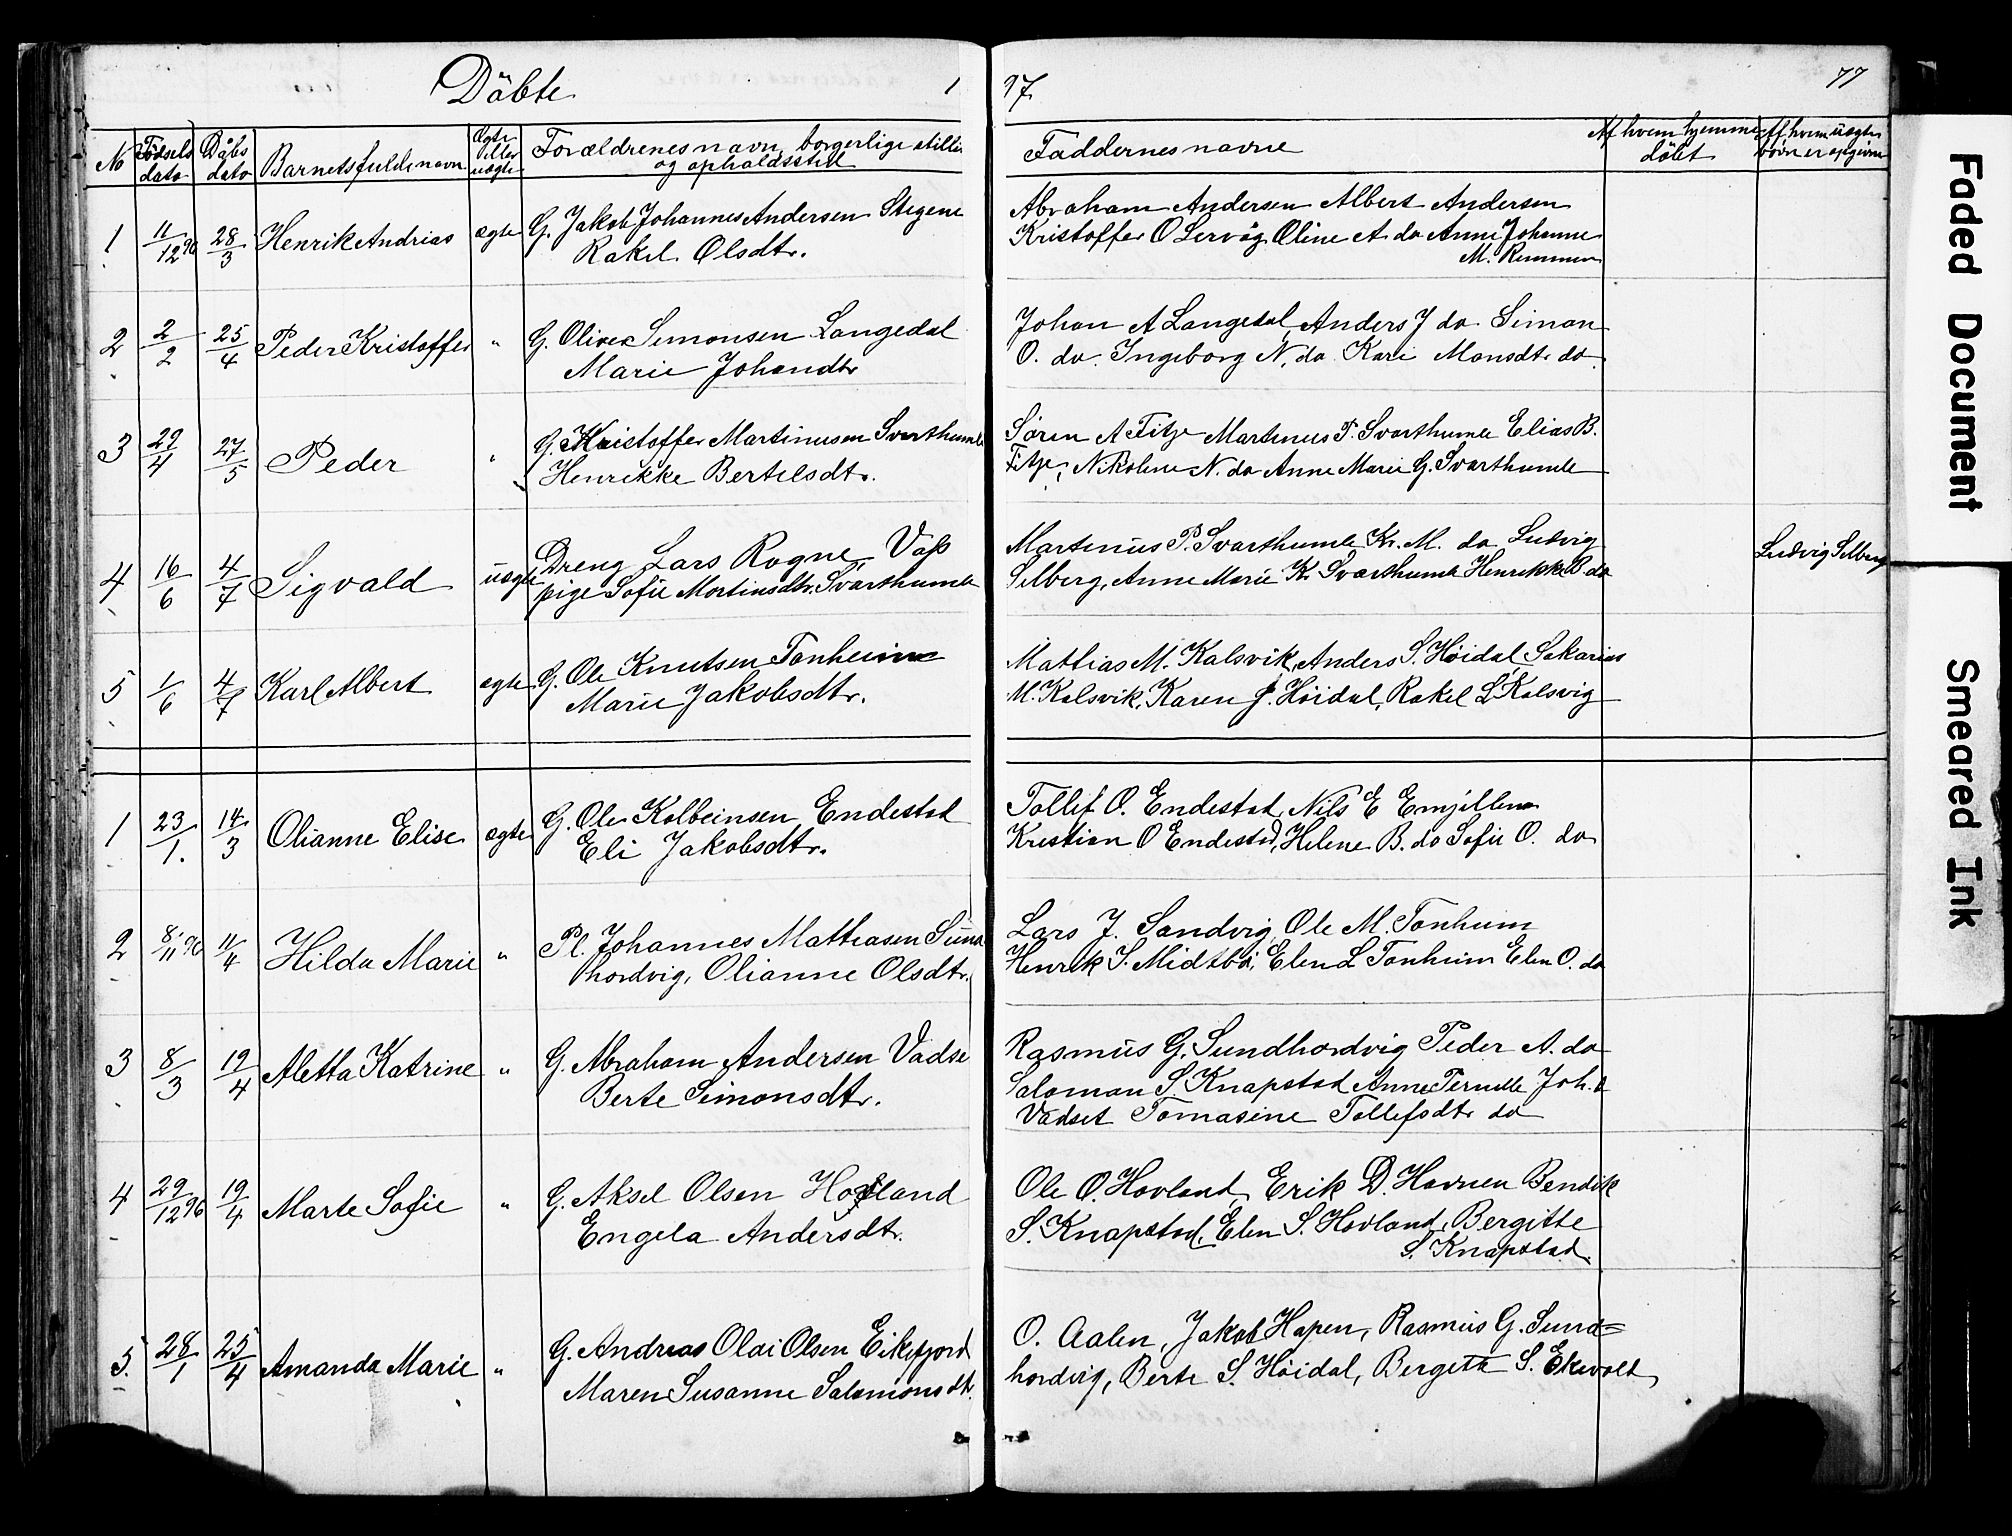 Döbte 1 97. 77
No Födsels dato Dåbs dato Barnets fulde navn Ægte eller uægte Forældrenes navn, borgerlige stilli og opholdssted Faddernes navne Af hvem hjemme döbt Af hvem uægte börn er opgivne
1 11/12 96 28/3 Henrik Andrias ægte G. Jakob Johannes Andersen Stegene
Rakel Olsdtr.
Abraham Andersen Albert Andersen
Kristoffer O Lervåg Oline A do Anne Johanne
M. Remmen
2 2/2 25/4 Peder Kristoffer " G. Oliver Simonsen Langedal
Marie Johandtr
Johan A Langedal, Anders J do Simon
O. do. Ingeborg N. do Kari Monsdtr do.
3 29/4 27/5 Peder " G. Kristoffer Martinusen Svarthumle
Henrikke Bertelsdtr.
Sören A Fitje Martinus P. Svarthumle Elias B.
Fitje, Nikoline N. do Anne Marie G. Svarthumle
4 16/6 4/7 Sigvald uægte Dreng Lars Rogne, Vass
pige Sofie Martinsdtr. Svarthumle
Martinus P. Svarthumle Kr. M. do Ludvig
Selberg, Anne Marie K. Svarthumle Henrikke B do
Ludvig Selberg
5 1/6 4/7 Karl Albert ægte G. Ole Knutsen Tonheim
Marie Jakobsdtr.
Mattias M. Kalsvik, Anders S. Höidal Sakarias
M. Kalsvik, Karen J. Höidal, Rakel L Kalsvig
1 23/1. 14/3 Olianne Elise ægte G. Ole Kolbeinsen Endestad
Eli Jakobsdtr.
Tollef O. Endestad, Nils E
Kristian O Endestad, Helene B. do Sofie O. do
2 8/11 96 11/4 Hilda Marie " Pl. Johannes Mathiasen Sund
hordvig, Olianne Olsdtr.
Lars J. Sandvig, Ole M. Tonheim
Henrik S. Midtbö, Elen L Tonheim Elen O. do
3 8/3 19/4 Aletta Katrine " G. Abraham Andersen Vadse
Berte Simonsdtr.
Rasmus G. Sundhordvig Peder A. do
Salomon S Knapstad Anne Pernille Joh.
Vadset Tomasine Tollefsdtr do
4 29/12 96 19/4 Marte Sofie " G. Aksel Olsen Hovland
Engela Andersdtr.
Ole O. Hovland, Erik D. Havnen Bendik
S. Knapstad, Elen S. Hovland, Bergitte
S. Knapstad.
5. 28/1 25/4 Amanda Marie " G. Andreas Olai Olsen Eikefjord
Maren Susanne Salomonsdtr.
O. Aalen, Jakob Hapen, Rasmus G. Sund=
hordvig, Berte S. Höidal, Bergitte S. Ekevolt
Faded Document
Smeared Ink